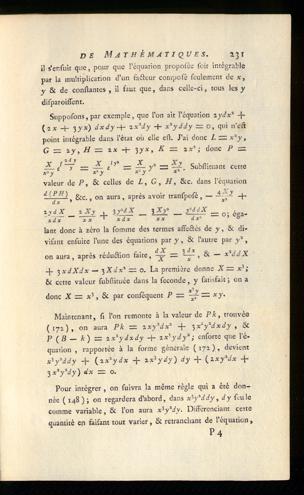 DE MATHÉMATIQUES. 231
il s'ensuit que, pour que l'équation proposée soit intégrable
par la multiplication d'un facteur composé seulement de x,
y & de constantes, il faut que, dans celle-ci, tous les y
disparoissent.
Supposons, par exemple, que l'on ait l'équation 2ydx² +
(2x + 3yx) dxdy + 2x²dy + x²yddy = 0, qui n'est
point intégrable dans l'état où elle est. J'ai donc L = x²y,
G = 2y, H = 2x + 3yx, K = 2x²; donc P =
Substituant cette
valeur de P, & celles de L, G, H, &c. dans l'équation
d(PH)/dx, &c., on aura, après avoir transposé,
= 0; éga-
lant donc à zéro la somme des termes affectés de y, & di-
visant ensuite l'une des équations par y, & l'autre par y²,
on aura, après réduction faite, dX/X = 3dx/x, & — x²ddX
+ 3xdXdx — 3Xdx² = 0. La première donne X = x³;
& cette valeur substituée dans la seconde, y satisfait; on a
donc X = x³, & par conséquent P = x³y/x² = xy.
Maintenant, si l'on remonte à la valeur de Pk, trouvée
(172), on aura Pk = 2xy²dx² + 3x²y²dxdy, &
P (B — k) = 2x²ydxdy + 2x³ydy²; ensorte que l'é-
quation, rapportée à la forme générale (172), devient
x³y²ddy + (2x²ydx + 2x³ydy) dy + (2xy²dx +
3x²y²dy) dx = 0.
Pour intégrer, on suivra la même règle qui a été don-
née (148); on regardera d'abord, dans x³y²ddy, dy seule
comme variable, & l'on aura x³y²dy. Différenciant cette
quantité en faisant tout varier, & retranchant de l'équation,
P 4